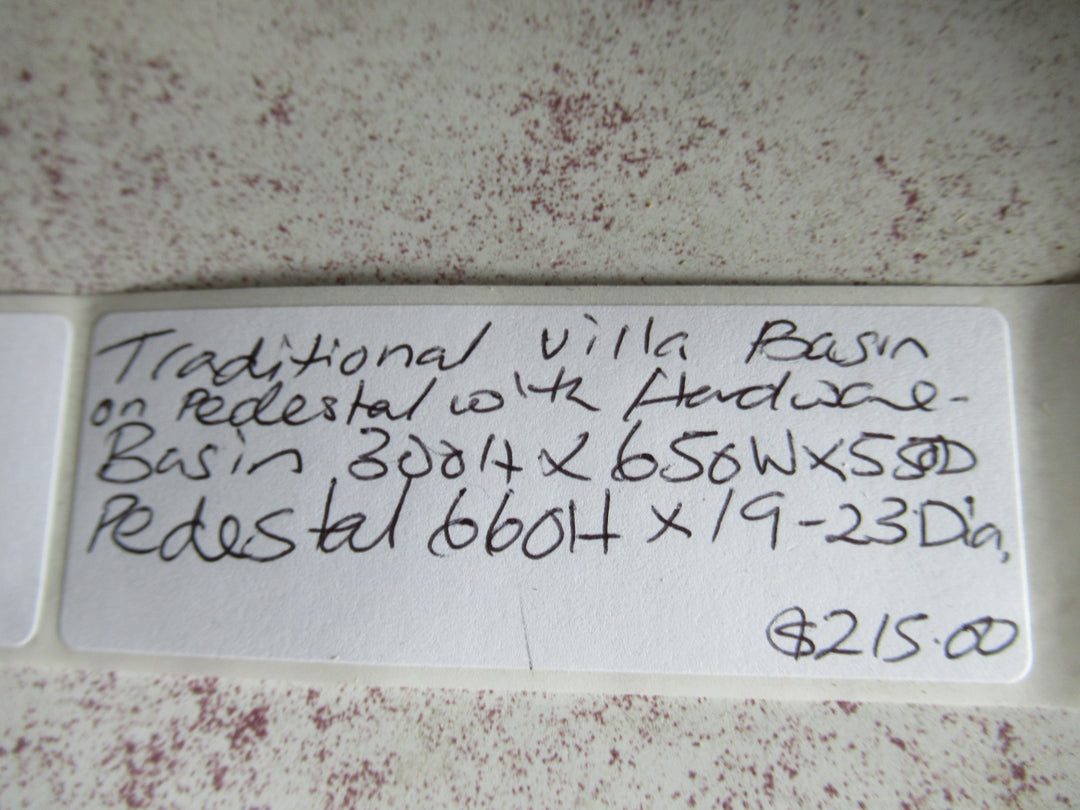 Traditional Villa Basin
on Pedestal with Hardware-
Basin 300H x 650W x 550D
Pedestal 660H x 19-23 Dia,
$215.00